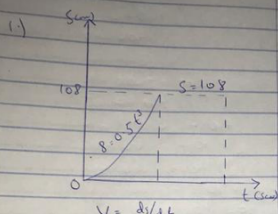 1.)
S(m)
108
S=108
8.0.5t³
0
t(sec)
V = ds/dt